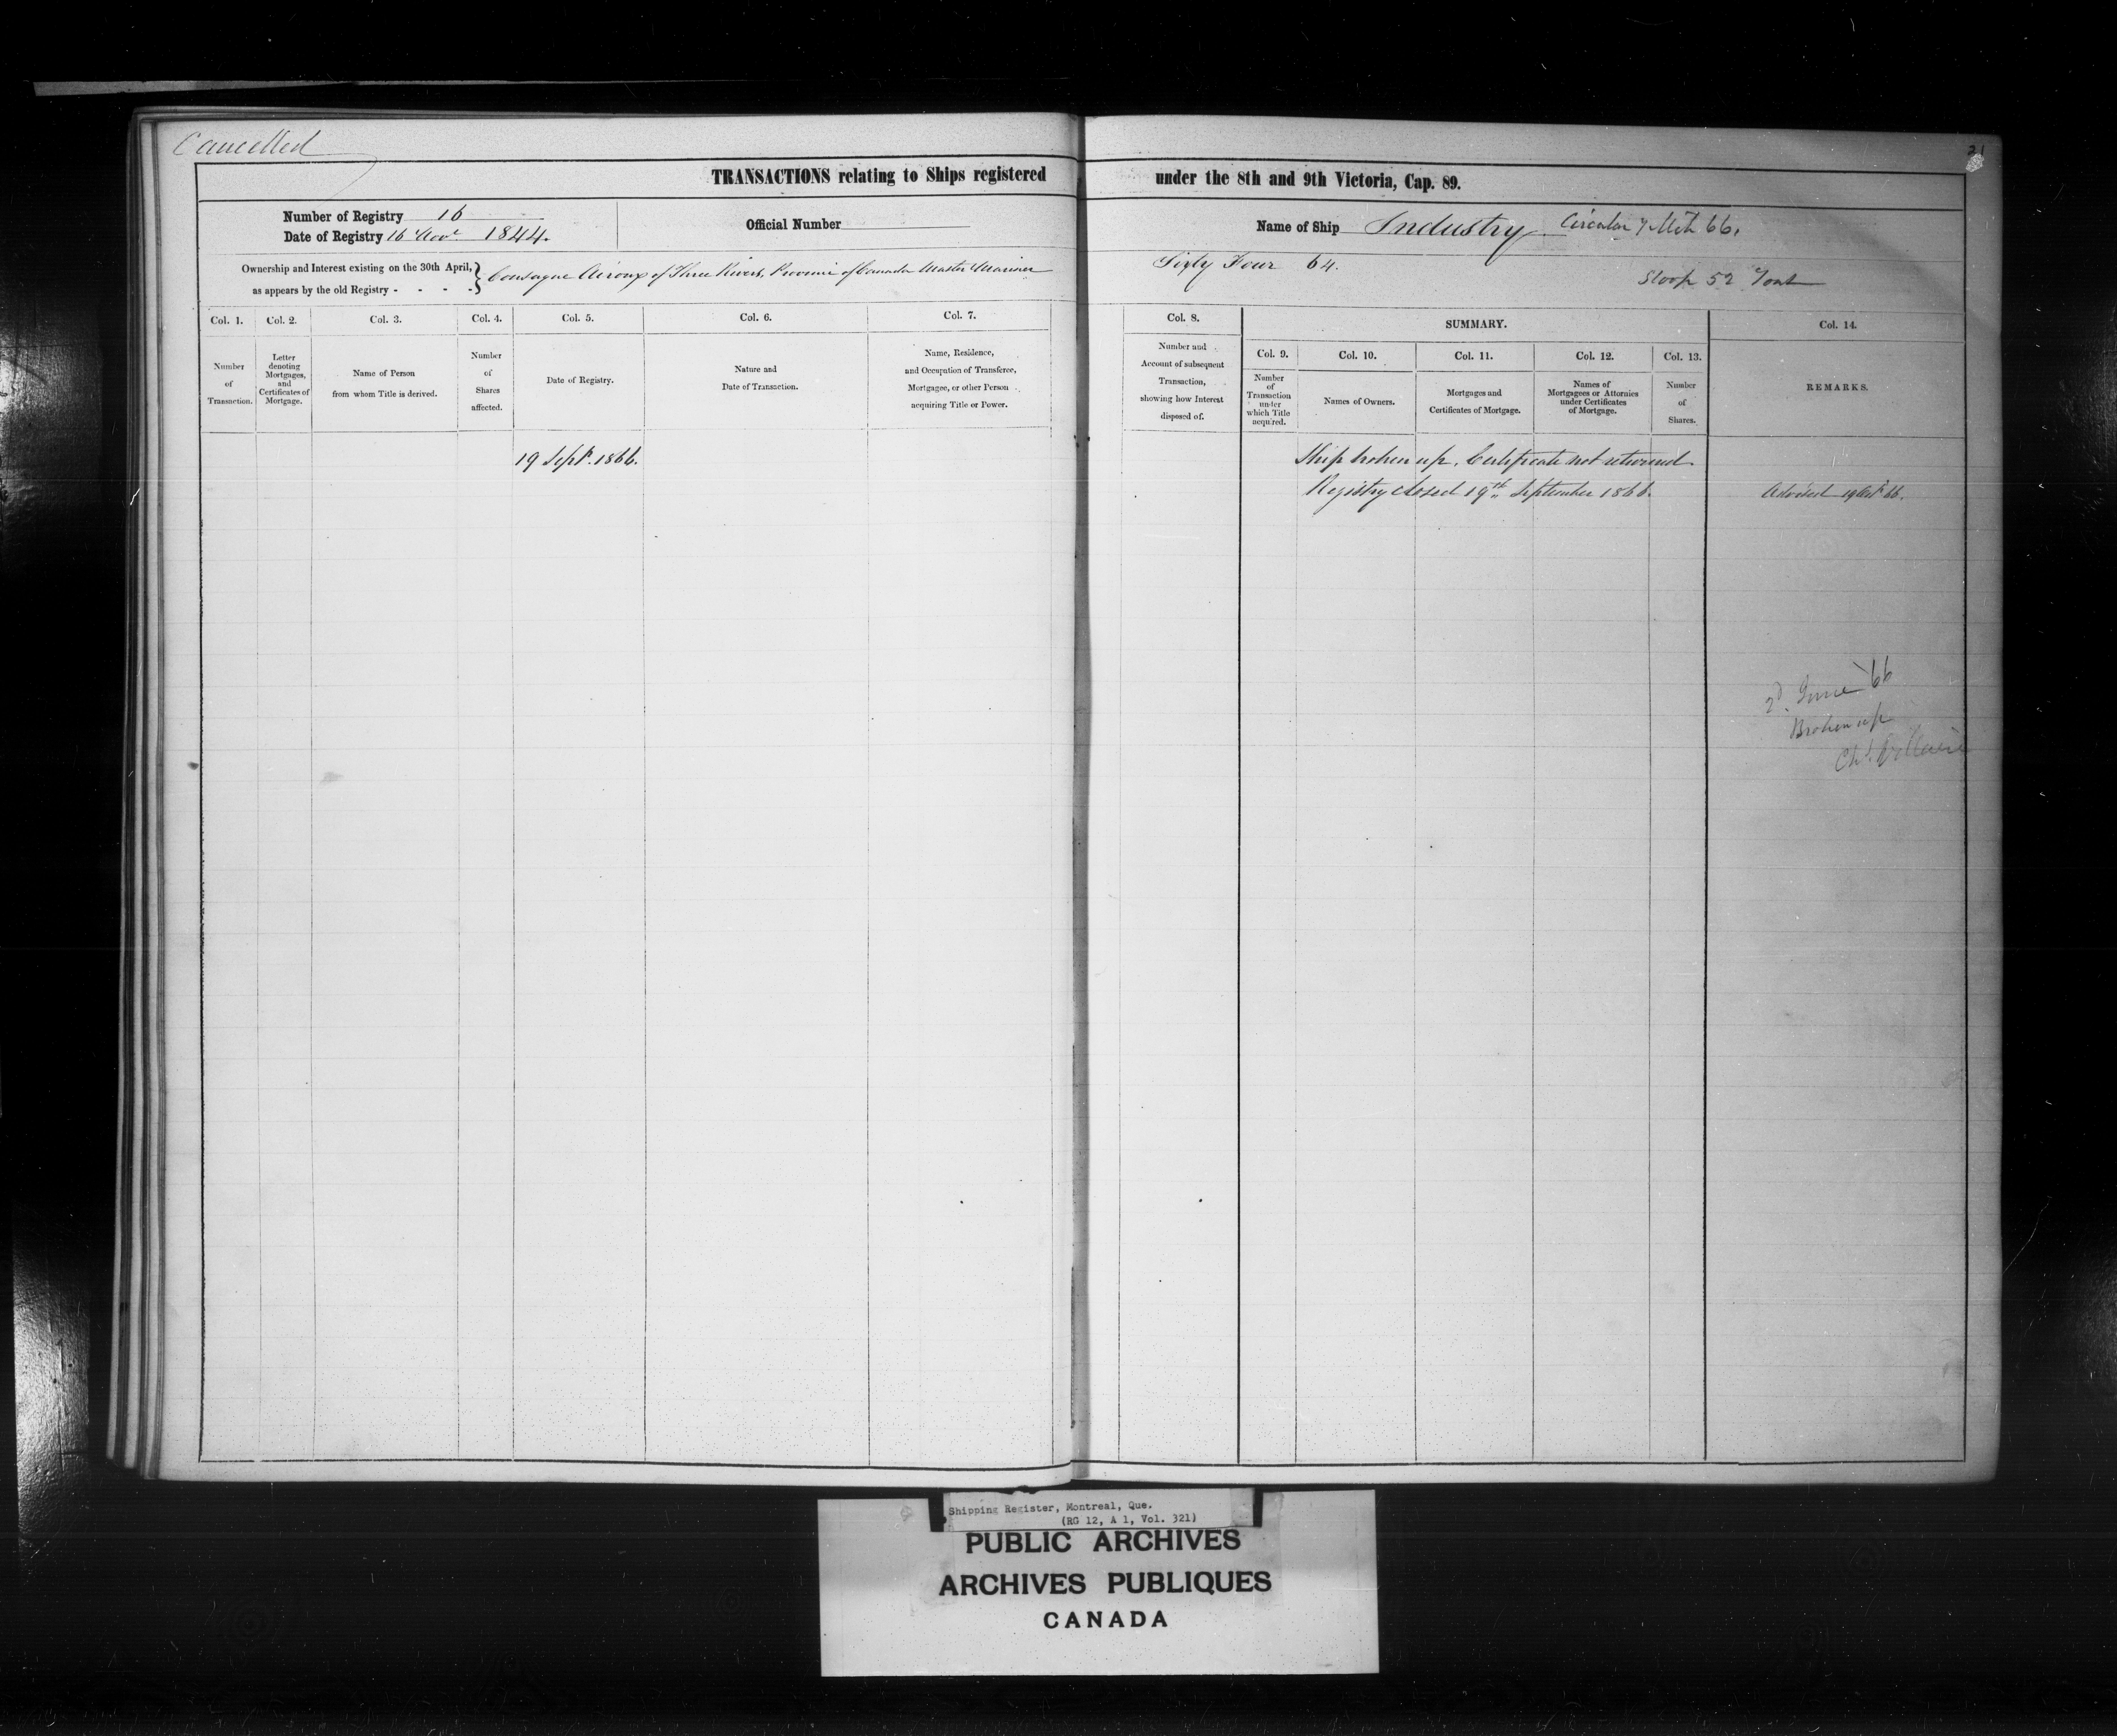 Cancelled
21
TRANSACTIONS relating to Ships registered under the 8th and 9th Victoria, Cap. 89.
Number of Registry 16
Date of Registry 16 Novr 1844.
Official Number
Name of Ship Industry Circular 7 Mch 66.
Ownership and Interest existing on the 30th April,
as appears by the old Registry - - - -
of Three Rivers, Province of Canada Master Mariner Sixty Four 64.
Sloop 52 Tons
Col. 1. Col. 2. Col. 3. Col. 4. Col. 5. Col. 6. Col. 7. Col. 8. SUMMARY. Col. 14.
Col. 9. Col. 10. Col. 11. Col. 12. Col. 13.
Number
of
Transaction.
Letter
denoting
Mortgages,
and
Certificates of
Mortgage.
Name of Person
from whom Title is derived.
Number
of
Shares
affected.
Date of Registry.
Nature and
Date of Transaction.
Name, Residence,
and Occupation of Transferee,
Mortgagee, or other Person
acquiring Title or Power.
Number and
Account of subsequent
Transaction,
showing how Interest
disposed of.
Number
of
Transaction
under
which Title
acquired.
Names of Owners.
Mortgages and
Certificates of Mortgage.
Names of
Mortgagees or Attornies
under Certificates
of Mortgage.
Number
of
Shares.
REMARKS.
19 Septr. 1866.
Ship broken up. Certificate not returned
Registry closed 19th September 1866.
Advised 19 66.
2d. June '66
Broken up
Shipping Register, Montreal, Que.
(RG 12, A 1, Vol. 321)
PUBLIC ARCHIVES
ARCHIVES PUBLIQUES
CANADA